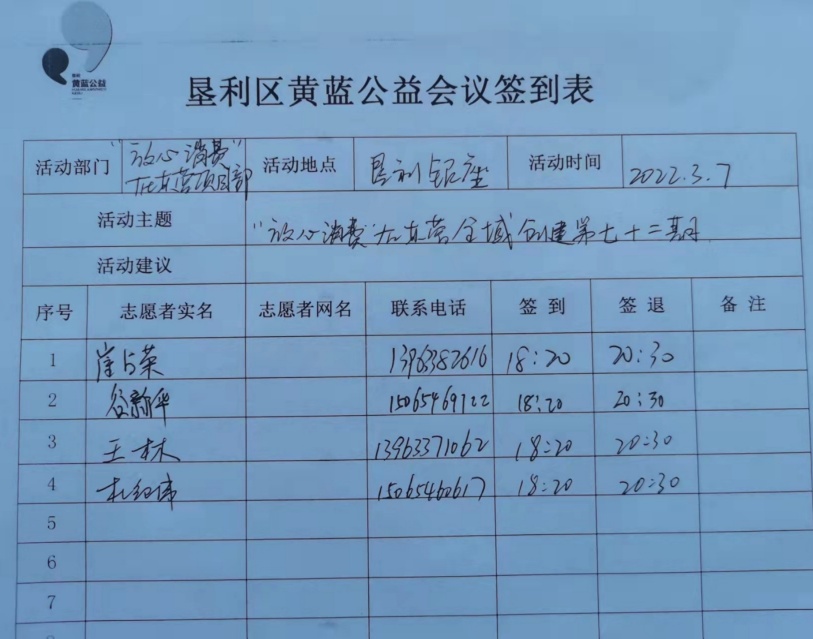 垦利
黄蓝公益
垦利区黄蓝公益会议签到表
活动部门 "放心消费" 在东营项目部 活动地点 垦利银座 活动时间 2022.3.7
活动主题 "放心消费 在东营全域"创建第七十二期
活动建议
序号 志愿者实名 志愿者网名 联系电话 签到 签退 备注
1 崔占荣 13963382616 18:20 20:30
2 谷新华 15065469722 18:20 20:30
3 王林 13963371062 18:20 20:30
4 杜纪伟 15065460617 18:20 20:30
5
6
7